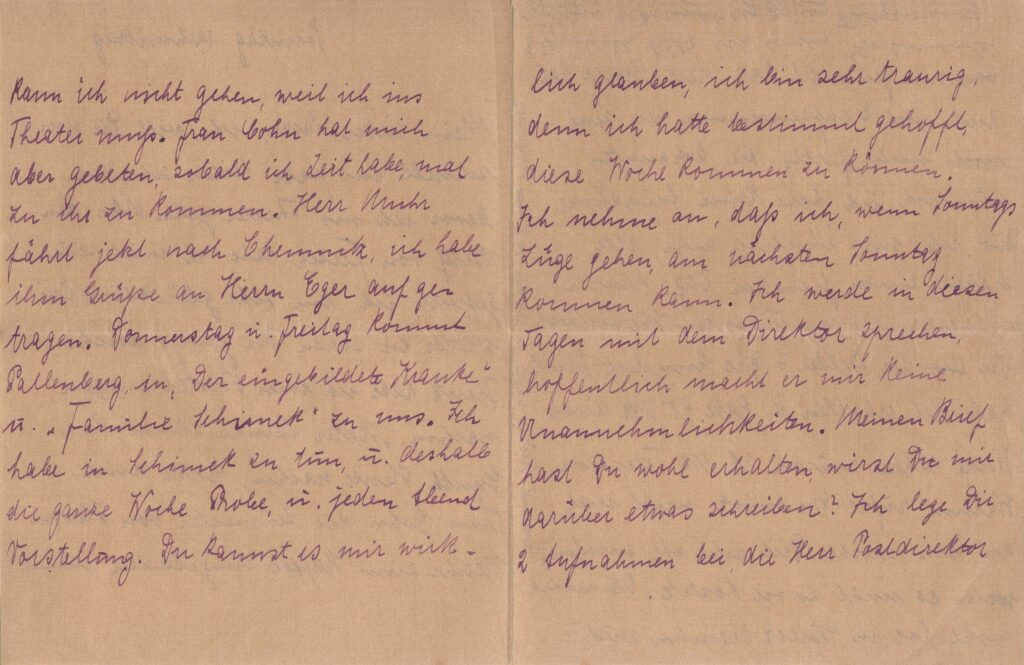 kann ich nicht gehen, weil ich ins
Theater muss. Frau Cohn hat mich
aber gebeten, sobald ich Zeit habe, mal
zu ihr zu kommen. Herr
fährt jetzt nach Chemnitz, ich habe
ihm Grüße an Herrn Eger aufge-
tragen. Donnerstag u. Freitag kommt
Pallenberg, in „Der eingebildete Kranke"
u. „Familie Schimek" zu uns. Ich
habe in Schimek zu tun, u. deshalb
die ganze Woche Probe, u. jeden Abend
Vorstellung. Du kannst es mir wirk-
lich glauben, ich bin sehr traurig,
denn ich hatte bestimmt gehofft,
diese Woche kommen zu können.
Ich nehme an, daß ich, wenn Sonntags
Züge gehen, am nächsten Sonntag
kommen kann. Ich werde in diesen
Tagen mit dem Direktor sprechen,
hoffentlich macht er mir keine
Unannehmlichkeiten. Meinen Brief
hast Du wohl erhalten, wirst Du mir
darüber etwas schreiben? Ich lege Dir
2 Aufnahmen bei, die Herr Postdirektor